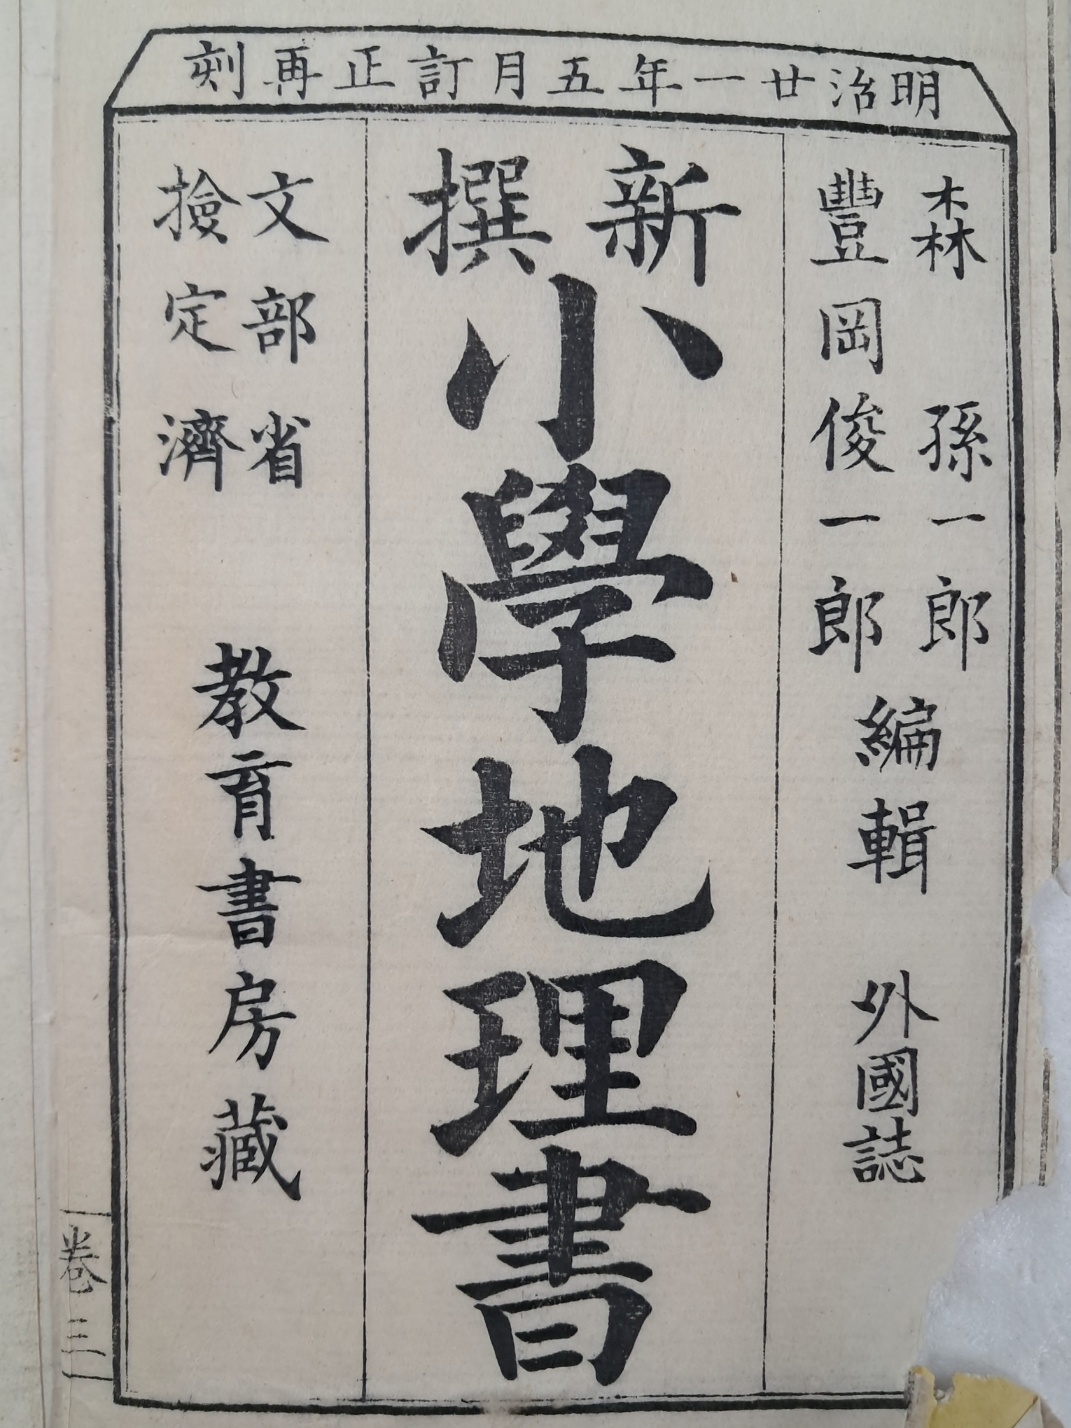 明治廿一年五月訂正再刻
森孫一郎
豐岡俊一郎
編輯
外國誌
新撰
小學地理書
文部省
撿定濟
教育書房藏
卷三